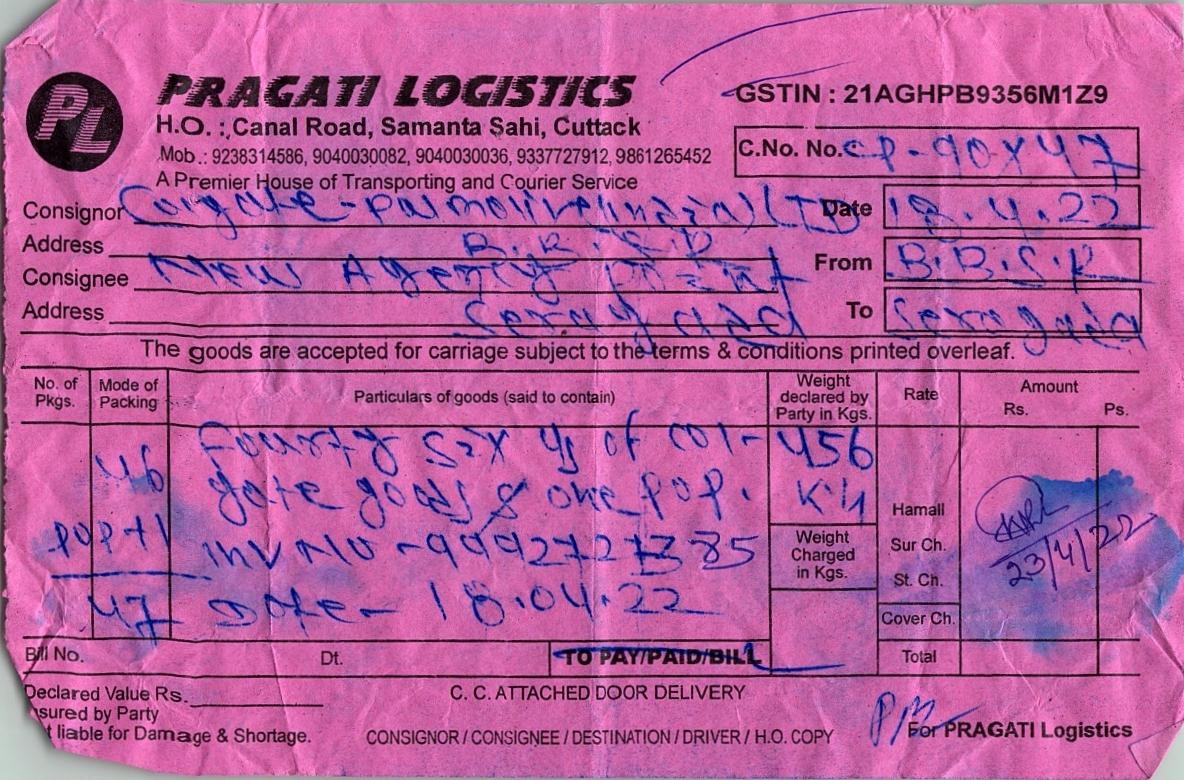 PL
PRAGATI LOGISTICS
GSTIN : 21AGHPB9356M1Z9
H.O. : Canal Road, Samanta Sahi, Cuttack
C.No. No. CP-90X47
Mob.: 9238314586, 9040030082, 9040030036, 9337727912, 9861265452
A Premier House of Transporting and Courier Service
Consignor Colgate-Palmolive(India) LTD Date 18.4.22
Address
Consignee New Agency Point From
Address To
The goods are accepted for carriage subject to the terms & conditions printed overleaf.
No. of Pkgs. Mode of Packing Particulars of goods (said to contain) Weight declared by Party in Kgs. Rate Amount Rs. Ps.
46 Fourty Six of Col- 456
gate goods & one pop. KG
Hamali
pop+1 INV NO - Weight Charged in Kgs. Sur Ch. 23/4/22
St. Ch.
47 Date - 18.04.22
Cover Ch.
Bill No. Dt. TO PAY/PAID/BILL Total
Declared Value Rs. C. C. ATTACHED DOOR DELIVERY
sured by Party
t liable for Damage & Shortage. CONSIGNOR / CONSIGNEE / DESTINATION / DRIVER / H.O. COPY For PRAGATI Logistics